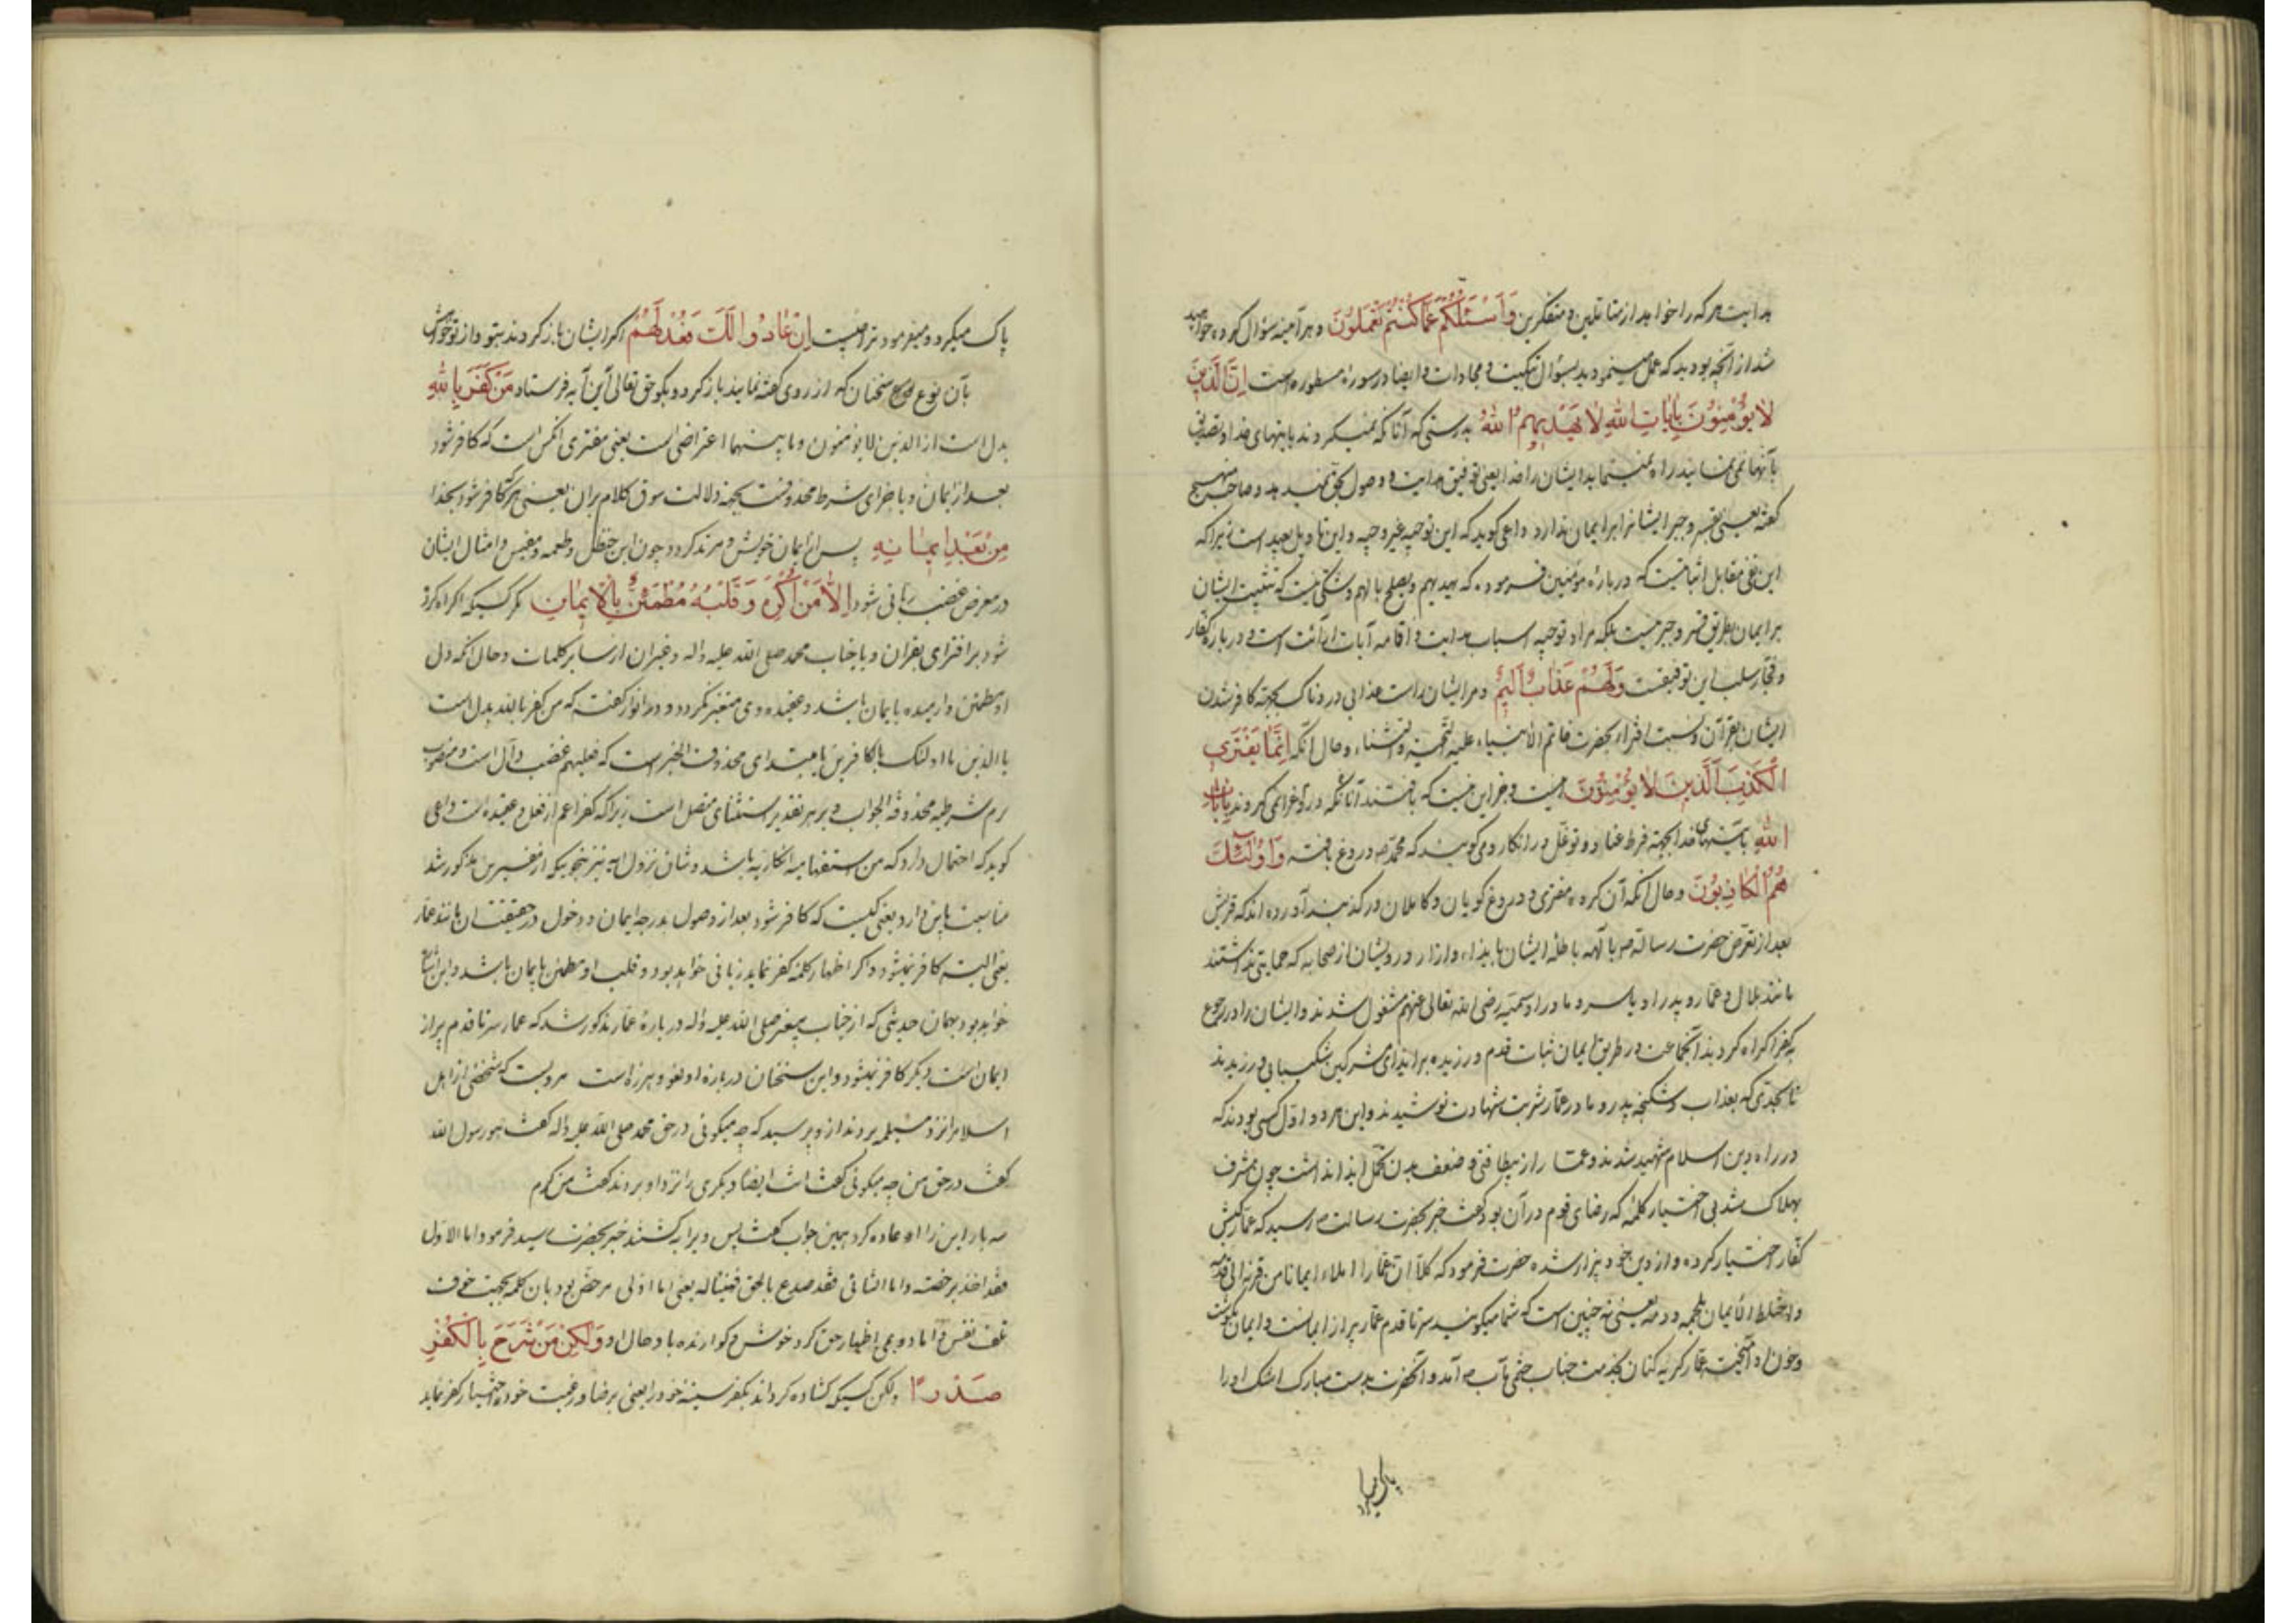 هدایت هرکه را خواهد از متأملین و متفکرین وَلَتُسْئَلُنَّ عَمَّا كُنْتُمْ تَعْمَلُونَ و هر آینه سؤال کرده خواهید
شد از آنچه بودید که عمل مینمودید بسؤال تبکیت و مجازات و ایضا در سوره مسطوره است اِنَّ الَّذینَ
لا یُؤْمِنُونَ بِایاتِ اللهِ لا یَهْدیهِمُ اللهُ بدرستی که آنانکه نمیگروند بآیتهای خدا و تصدیق
بآنها نمی نمایند راه نمینماید ایشان را خدا یعنی توفیق هدایت و وصول بحق نمیدهد و صاحب منهج
گفته یعنی بقسر و جبر ایشانرا بر ایمان ندارد داعی گوید که این توجیه غیر وجیه و این تاویل بعید است زیرا که
این نفی مقابل اثباتیست که درباره مؤمنین فرموده که یهدیهم و یصلح بالهم و شکی نیست که تثبیت ایشان
بر ایمان بطریق قسر و جبر نیست بلکه مراد توجیه اسباب هدایت و اقامه آیات است و درباره کفار
و فجار سلب این توفیقست وَلَهُمْ عَذابٌ اَلیمٌ و مر ایشان راست عذابی دردناک بجهة کافر شدن
ایشان بقرآن و نسبت افتراء بحضرت خاتم الانبیاء علیه التحیة والثناء و حال آنکه اِنَّما یَفْتَرِی
الْكَذِبَ الَّذینَ لا یُؤْمِنُونَ و جز این نیست که بافتند آنانکه دروغ را نمی گروند بِایاتِ
اللهِ بآیتهای خدا بجهة فرط عناد و توغل در انکار و می گویند که محمد ص دروغ بافته وَ اُولئِكَ
هُمُ الْكاذِبُونَ و حال آنکه آن گروه مفتری و دروغ گویان و کاملان در کذبند آورده اند که قریش
بعد از تعرض حضرت رسالت ص با آلهه باطله ایشان بایذاء و آزار درویشان از صحابه که حمایتی نداشتند
مانند بلال و عمار و پدر او یاسر و مادر او سمیه رضی الله تعالی عنهم مشغول شدند و ایشان را در رجوع
بکفر اکراه کردند آنجماعت در طریق ایمان ثبات قدم ورزیده بر ایذای مشرکین شکیبایی ورزیدند
تا بحدی که بعذاب و شکنجه پدر و مادر عمار شربت شهادت نوشیدند و این هر دو اول کسی بودند که
در راه دین اسلام شهید شدند و عمار از بیطاقتی و ضعف بدن تحمل ایذا نداشت چون مشرف
بهلاک شد بی اختیار کلمه که رضای قوم در آن بود گفت خبر بحضرت رسالت ص رسید که عمار کیش
کفار اختیار کرده و از دین خود بیزار شده حضرت فرمود که کلا ان عمارا املاء ایمانا من قرنه الی قدمه
و اختلط الایمان بلحمه و دمه یعنی نه چنین است که شما میگویید سرتا قدم عمار پر از ایمانست و ایمان بگوشت
و خون او آمیخته عمار گریه کنان بخدمت جناب ختمی مآب ص آمد و آنحضرت بدست مبارک اشک او را
پاک میکرد و میفرمود ترا چیست اِنْ عادُوا لَكَ فَعُدْ لَهُمْ اگر ایشان باز گردند بتو و از تو خواهش
بآن نوع سخنان که از روی گفته نمایند بازگرد و بگو حق تعالی این آیه فرستاد مَنْ كَفَرَ بِاللهِ
بدل است از الذین لا یؤمنون و مابینهما اعتراضی است یعنی مفتری آنکس است که کافر شود
بعد از ایمان و یا جزای شرط محذوفست بجهة دلالت سوق کلام بران یعنی هرکه کافر شود بخدا
مِنْ بَعْدِ ایمانِهِ پس از ایمان خویش و مرتد گردد چون ابن حنظل و طعمه و مقیس و امثال ایشان
در معرض غضب ربانی شود اِلاّ مَنْ اُكْرِهَ وَ قَلْبُهُ مُطْمَئِنٌّ بِالْایمانِ مگر کسیکه اکراه کرده
شود بر افترای بقران و یا جناب محمد صلی الله علیه واله و غیر ان از سایر کلمات و حال آنکه دل
او مطمئن و آرمیده بایمان باشد و عقیده وی متغیر نگردد و در انوار گفته که من کفر بالله بدل است
یا الذین یا اولئک یا الکاذبون یا مبتدای محذوف الخبر است که فعلیهم غضب دال است و منصوب
بذم شرطیه محذوفة الجواب و بر هر تقدیر استثنای متصل است زیرا که کفر اعم از فعل و عقیده است داعی
گوید که احتمال دارد که من استفهامیه انکاریه باشد و شان نزول آیه نیز بنحویکه از مفسرین مذکور شد
مناسبت باین دارد یعنی کیست که کافر شود بعد از وصول بدرجه ایمان و دخول در حقیقت آن مانند عمار
یعنی البته کافر نمیشود و اگر اظهار کلمه کفر نماید زبانی خواهد بود و قلب او مطمئن بایمان باشد و این
خواهد بود بهمان حدیثی که از جناب پیغمبر صلی الله علیه واله درباره عمار مذکور شد که عمار سرتا قدم پر از
ایمان است دیگر کافر نمیشود و این سخنان درباره او لغو و هرزه است مرویست که شخصی از اهل
اسلام را نزد مسیلمه بردند از و پرسید که چه میگوئی در حق محمد صلی الله علیه واله گفت هو رسول الله
گفت در حق من چه میگوئی گفت انت ایضا دیگری را نزد او بردند گفت من کرم
سه بار این را اعاده کرد همین جواب گفت پس ویرا بکشتند خبر بحضرت رسید فرمود اما الاول
فقد اخذ برخصه و اما الثانی فقد صدع بالحق فهنیئا له یعنی اما اولی مرخص بود بان کلمه بجهت خوف
تلف نفس و اما دویمی اظهار حق کرد خوش و گوارنده باد حال او وَلكِنْ مَنْ شَرَحَ بِالْكُفْرِ
صَدْرًا ولکن کسیکه گشاده گرداند بکفر سینه خود را یعنی برضا و رغبت خود اختیار کفر نماید